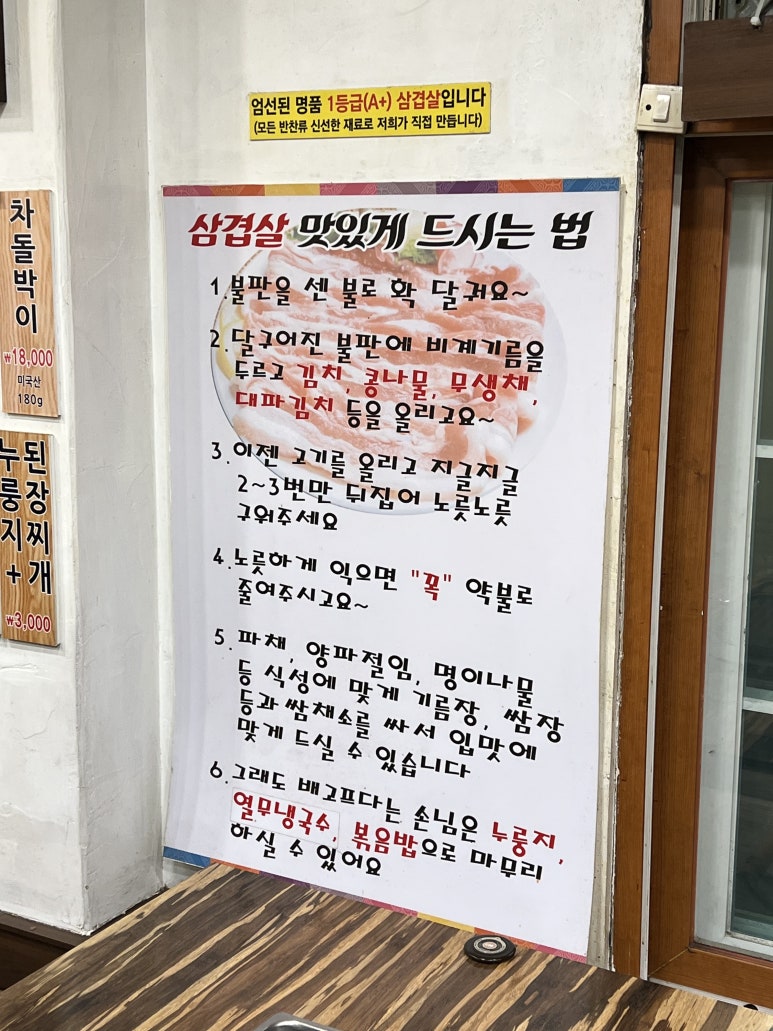 엄선된 명품 1등급(A+) 삼겹살입니다
(모든 반찬류 신선한 재료로 저희가 직접 만듭니다)
삼겹살 맛있게 드시는 법
1.불판을 센 불로 확 달궈요~
2.달구어진 불판에 비계기름을
두르고 김치, 콩나물, 무생채,
대파김치 등을 올리고요~
3.이젠 고기를 올리고 지글지글
2~3번만 뒤집어 노릇노릇
구워주세요
4.노릇하게 익으면 "꼭" 약불로
줄여주시고요~
5.파채, 양파절임, 명이나물
등 식성에 맞게 기름장, 쌈장
등과 쌈채소를 싸서 입맛에
맞게 드실 수 있습니다
6.그래도 배고프다는 손님은 누룽지,
열무냉국수, 볶음밥으로 마무리
하실 수 있어요
차돌박이
₩18,000
미국산
180g
된장찌개
누룽지+
₩3,000